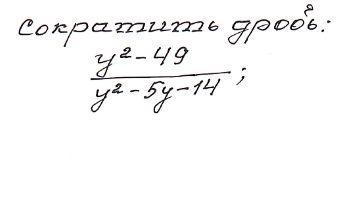 сократить дробь:
y² - 49
y² - 5y - 14 ;